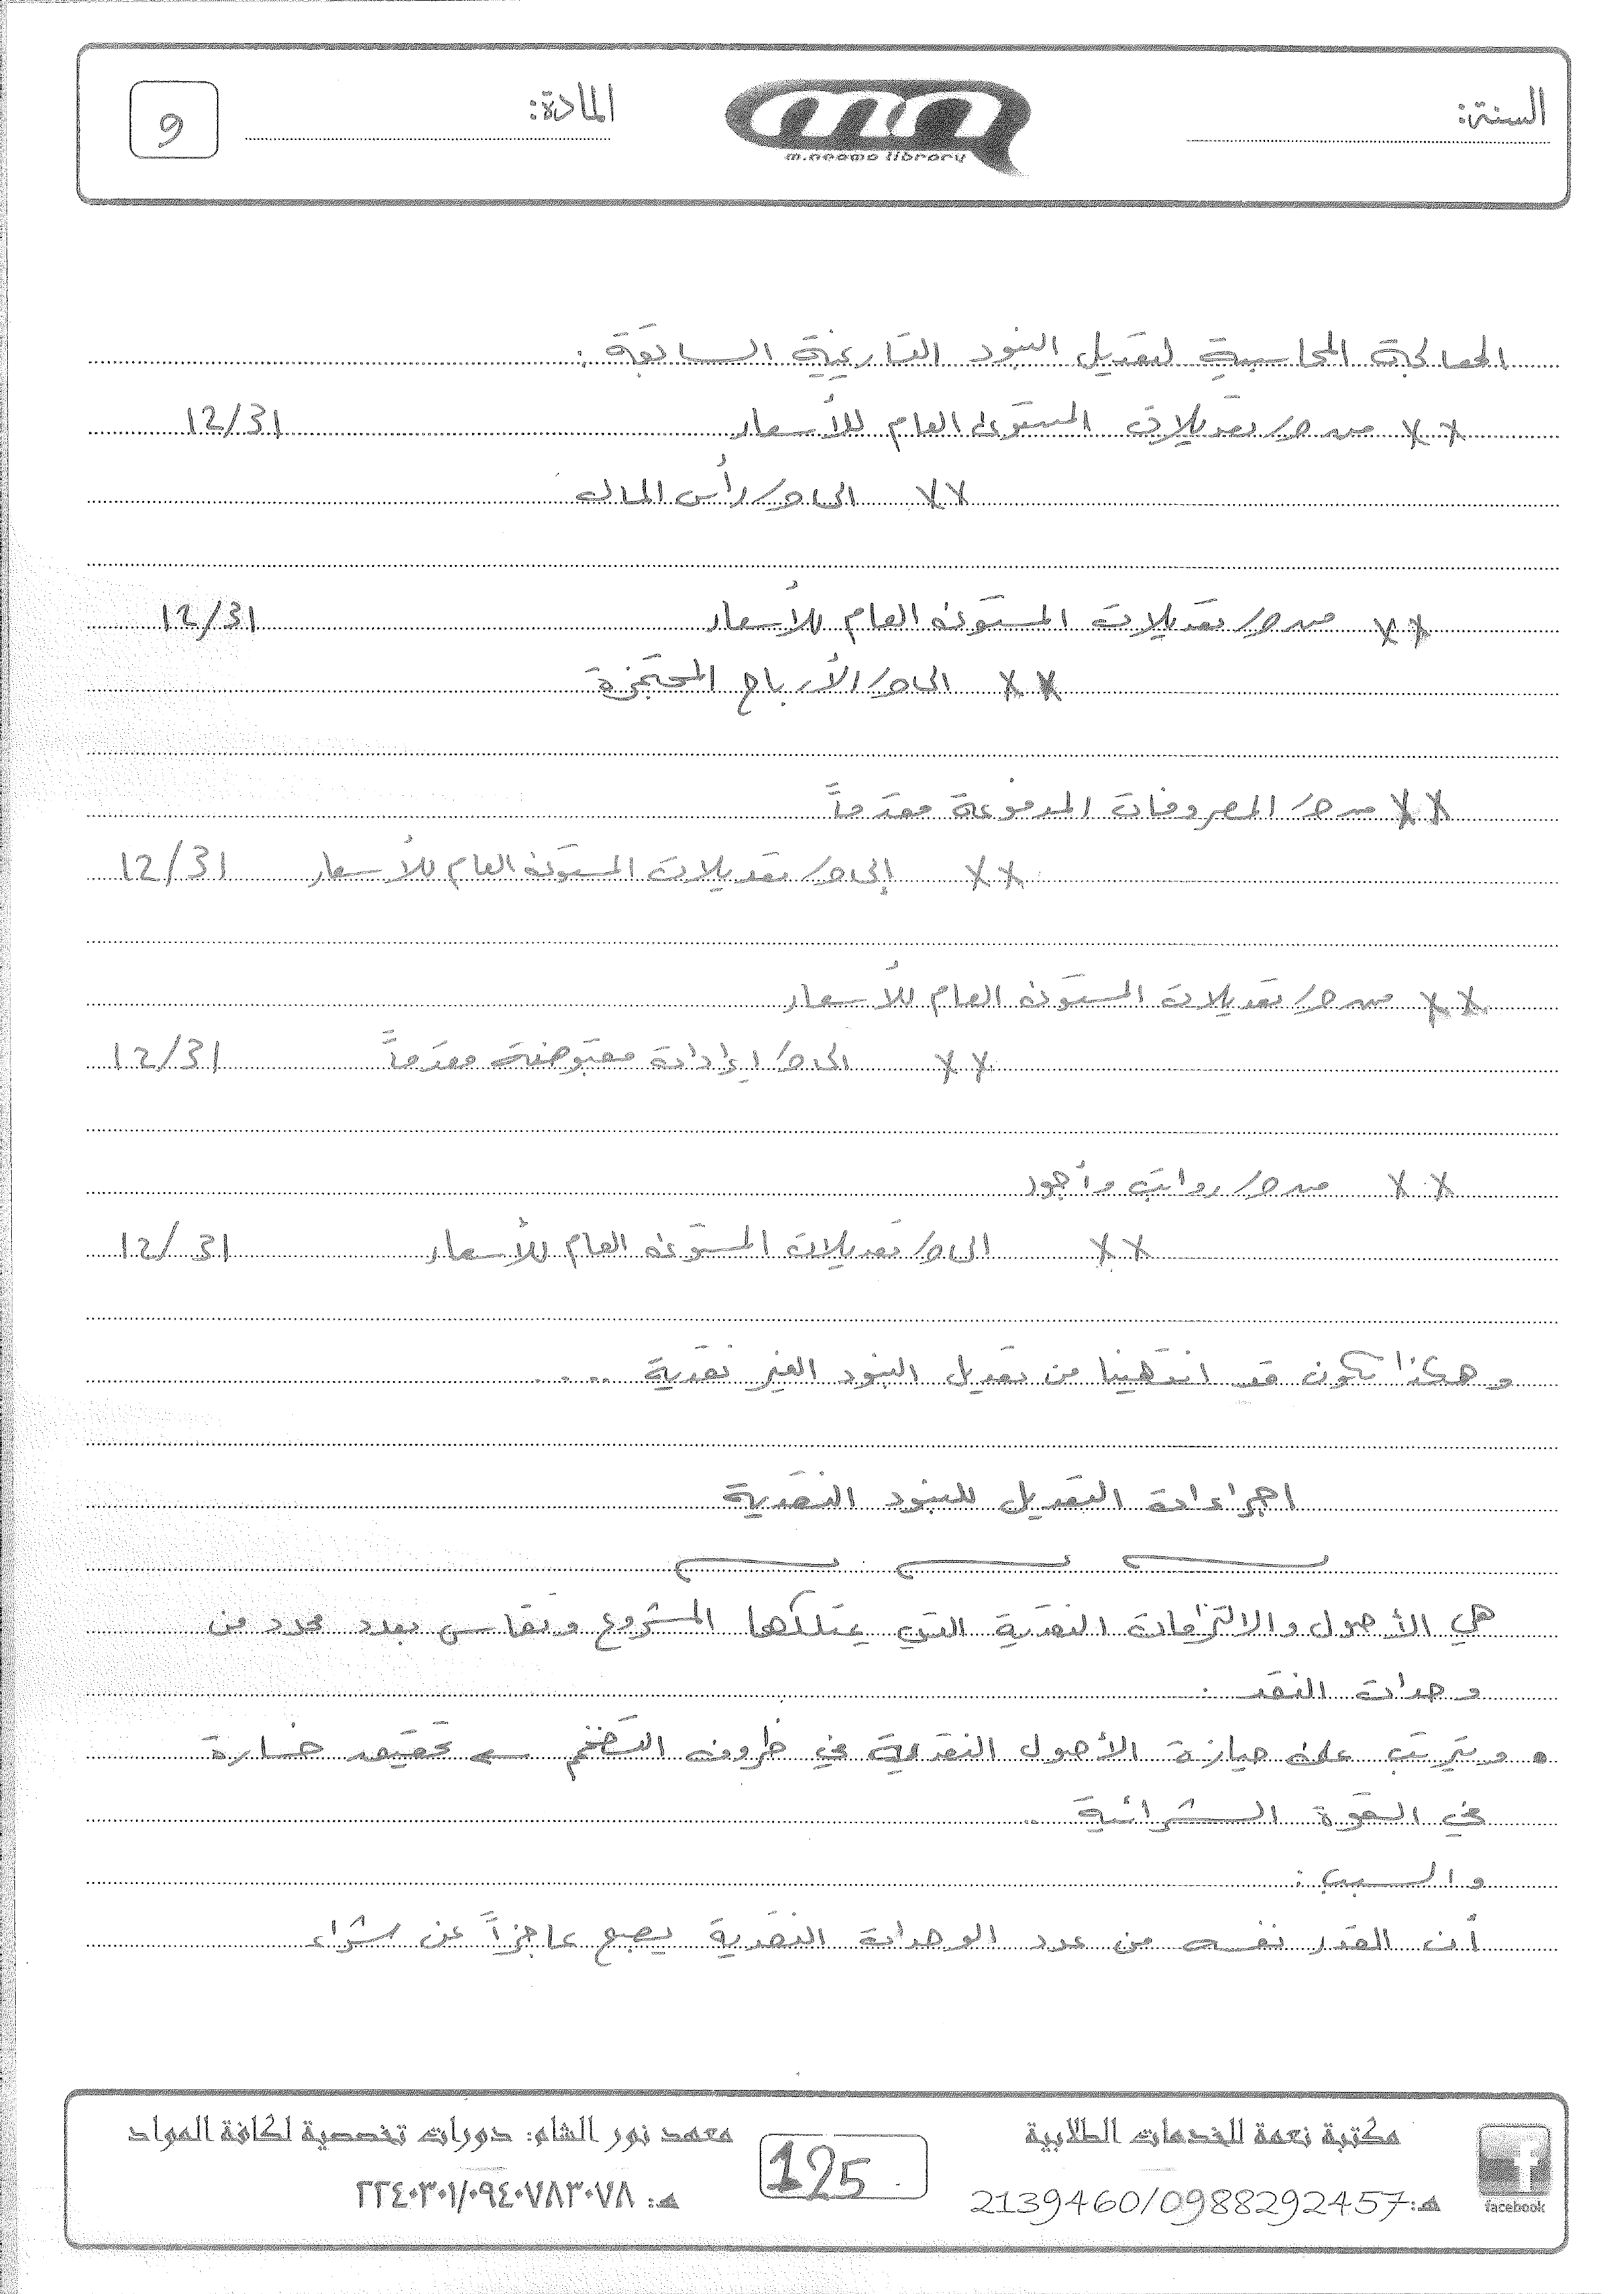 السنة:
m.neama library
المادة:
9
المعالجة المحاسبية لتعديل البنود التاريخية السابقة :
×× من ح/ تعديلات المستوى العام للأسعار 12/31
×× الى ح/ رأس المال
×× من ح/ تعديلات المستوى العام للأسعار 12/31
×× الى ح/ الأرباح المحتجزة
×× من ح/ المصروفات المدفوعة مقدماً
×× إلى ح/ تعديلات المستوى العام للأسعار 12/31
×× من ح/ تعديلات المستوى العام للأسعار
×× الى ح/ إيرادات مقبوضة مقدماً 12/31
×× من ح/ رواتب وأجور
×× الى ح/ تعديلات المستوى العام للأسعار 12/31
وهكذا نكون قد انتهينا من تعديل البنود الغير نقدية ....
اجراءات التعديل للبنود النقدية
هي الأصول والالتزامات النقدية التي يمتلكها المشروع وتقاس بعدد محدد من
وحدات النقد .
• ويترتب على حيازة الأصول النقدية في ظروف التضخم ← تحقيق خسارة
في القوة الشرائية ..
والسبب :
أن القدر نفسه من عدد الوحدات النقدية يصبح عاجزاً عن شراء
مكتبة نعمة للخدمات الطلابية
هـ: 2139460/0988292457
facebook
125
معهد نور الشام: دورات تخصصية لكافة المواد
هـ: ٢٢٤٠٣٠١/٠٩٤٠٧٨٣٠٧٨